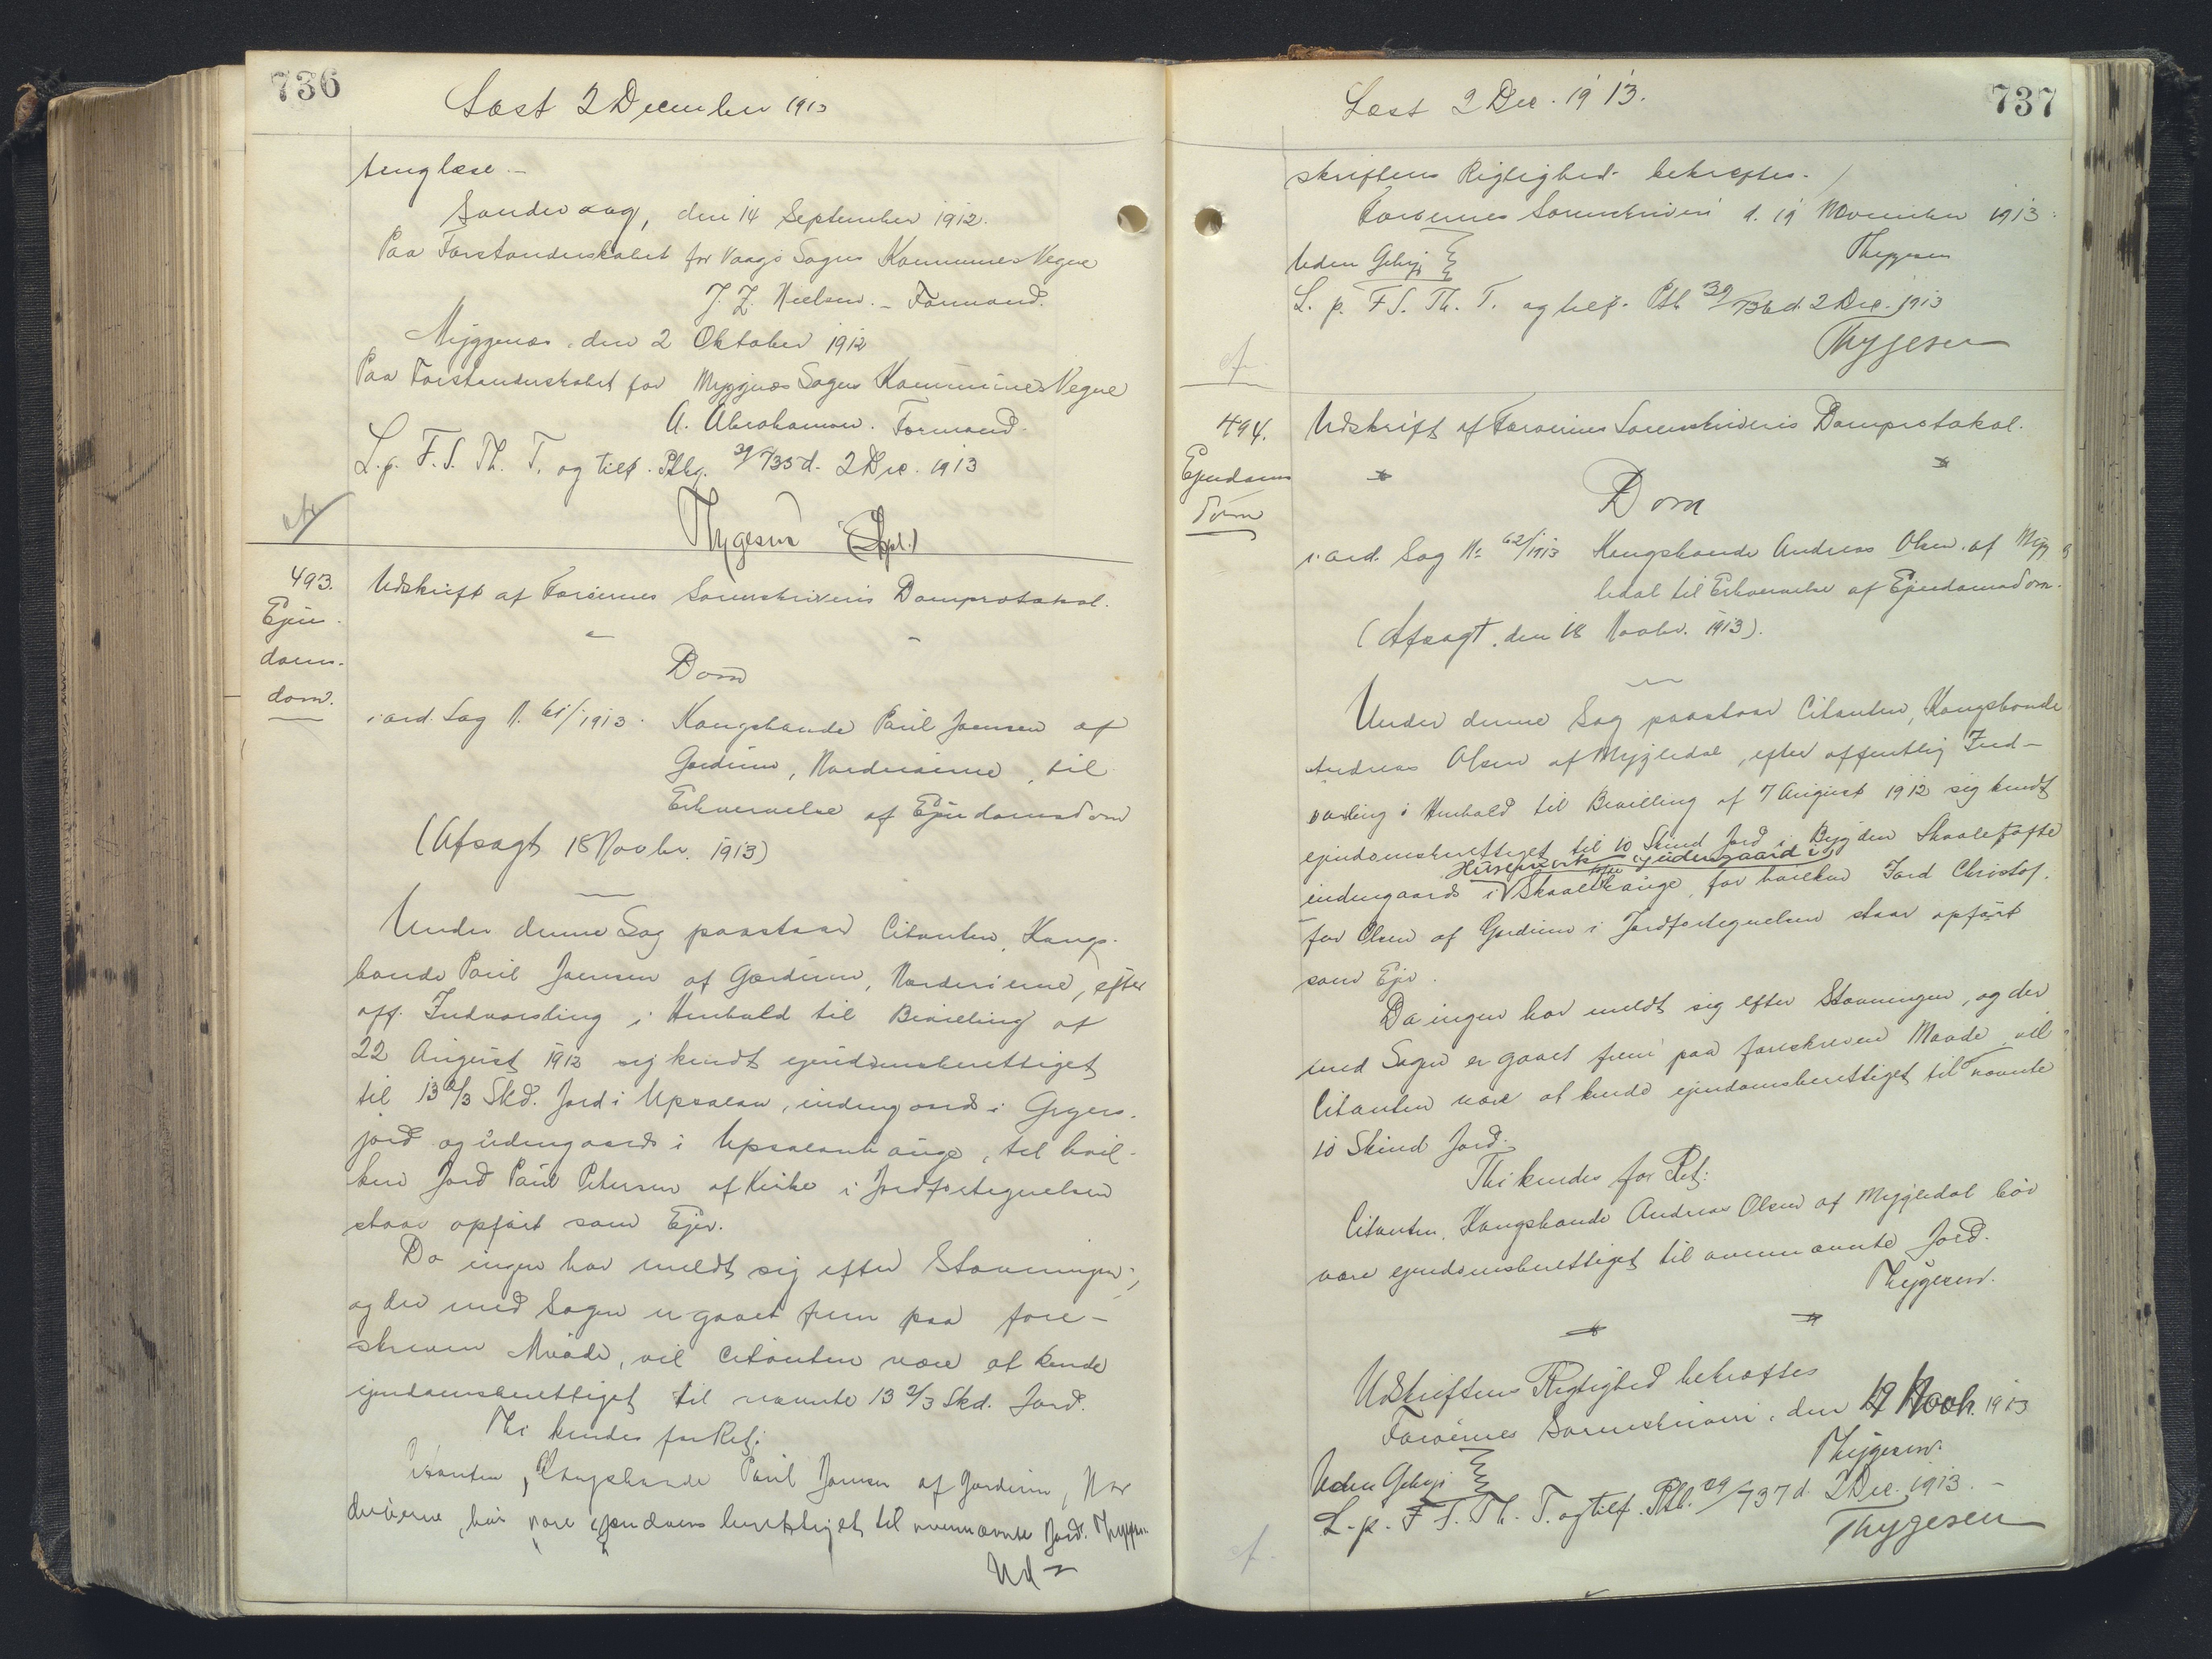 736
Læst 2 December 1913
tinglæse. –
Sandevaag, den 14 September 1912.
Paa Forstanderskabet for Vaagø Sogns Kommunes Vegne
J. Z. Nielsen. – Formand.
Myggenæs, den 2 Oktober 1912
Paa Forstanderskabet for Myggnæs Sogns Kommunes Vegne
A. Abrahamsen. Formand.
L. p. F. S. Th. T. og tilf. Ptbg. 29/735 d. 2 Dec. 1913
Thygesen
493.
Ejen-
doms-
dom.
Udskrift af Færøernes Sorenskriveris Domprotokol.
Dom
i ord. Sag N. 61/1913. Kongsbonde Paul Joensen af
Gjerdum, Norderøerne, til
Erhvervelse af Ejendomsdom
(Afsagt 18 Novbr. 1913)
Under denne Sag paastaar Citanten, Kongs-
bonde Paul Joensen af Gærdum, Norderøerne, efter
off. Indvarsling i Henhold til Bevilling af
22 August 1912 sig kendt ejendomsberettiget
til 13 2/3 Skd. Jord i Upsalen, indengaards i Gryers-
jord og udengaards i Upsalenhauge, til hvil-
ken Jord Paul Petersen af Kirke i Jordfortegnelsen
staar opført som Ejer.
Da ingen har meldt sig efter Stævningen,
og der med Sagen er gaaet frem paa fore-
skreven Maade, vil Citanten være at kende
ejendomsberettiget til nævnte 13 2/3 Skd. Jord.
Thi kendes for Ret:
Citanten, Kongsbonde Paul Joensen af Gjerdum, Nor
derøerne, bør være ejendomsberettiget til ovennævnte Jord. Thygesen
Ud-
737
Læst 2 Dec. 1913.
skriftens Rigtighed bekræftes.
Færøernes Sorenskriveri d. 19 November 1913.
Thygesen
Uden Gebyr
L. p. F. S. Th. T. og tilf. Ptb. 29/736 d. 2 Dec. 1913
Thygesen
494.
Ejendoms
dom
Udskrift af Færøernes Sorenskriveris Domprotokol.
Dom
i ord. Sag N: 62/1913 Kongsbonde Andreas Olsen af Myg
ledal til Erhvervelse af Ejendomsdom.
(Afsagt den 18 Novbr. 1913).
Under denne Sag paastaar Citanten, Kongsbonde
Andreas Olsen af Mygledal, efter offentlig Ind-
varsling i Henhold til Bevilling af 7 August 1912 sig kendt
ejendomsberettiget til 10 Skind Jord i Bygden Skaaletofte
Husepærk udengaard i
indengaards i Skaaletoftehauge, for hvilken Jord Christof-
fer Olsen af Gjerdum i Jordfortegnelsen staar opført
som Ejer.
Da ingen har meldt sig efter Stævningen, og der
med Sagen er gaaet frem paa foreskreven Maade, vil
Citanten være at kende ejendomsberettiget til nævnte
10 Skind Jord.
Thi kendes for Ret:
Citanten, Kongsbonde Andreas Olsen af Mygledal bør
være ejendomsberettiget til ovennævnte Jord.
Thygesen.
Udskriftens Rigtighed bekræftes
Færøernes Sorenskriveri, den 19 Novb. 1913
Thygesen.
Uden Gebyr
L. p. F. S. Th. T. og tilf. Ptb. 29/737 d. 2 Dec. 1913. –
Thygesen